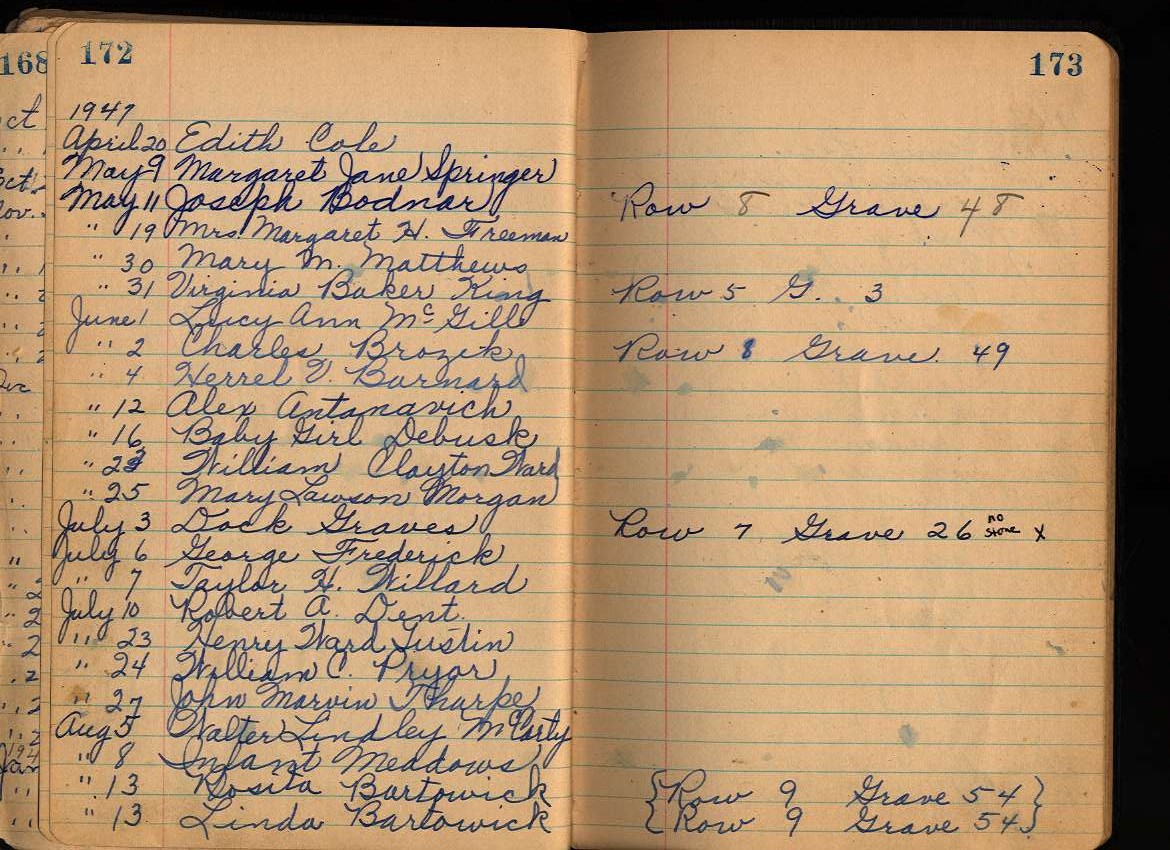 172
1947
April 20 Edith Cole
May 9 Margaret Jane Springer
May 11 Joseph Bodnar Row 8 Grave 48
" 19 Mrs. Margaret H. Freeman
" 30 Mary M. Matthews
" 31 Virginia Baker King Row 5 G. 3
June 1 Lucy Ann McGill
" 2 Charles Brozik Row 8 Grave 49
" 4 Herrel V. Barnard
" 12 Alex Antanavich
" 16 Baby Girl Debusk
" 23 William Clayton Ward
" 25 Mary Lawson Morgan
July 3 Dock Graves Row 7 Grave 26 no stone x
July 6 George Frederick
" 7 Taylor H. Willard
July 10 Robert A. Dent.
" 23 Henry Ward Justin
" 24 William C. Pryor
" 27 John Marvin Tharpe
Aug 5 Walter Lindley McCarty
" 8 Infant Meadows
" 13 Rosita Bartowick {Row 9 Grave 54}
" 13 Linda Bartowick {Row 9 Grave 54}
173
168